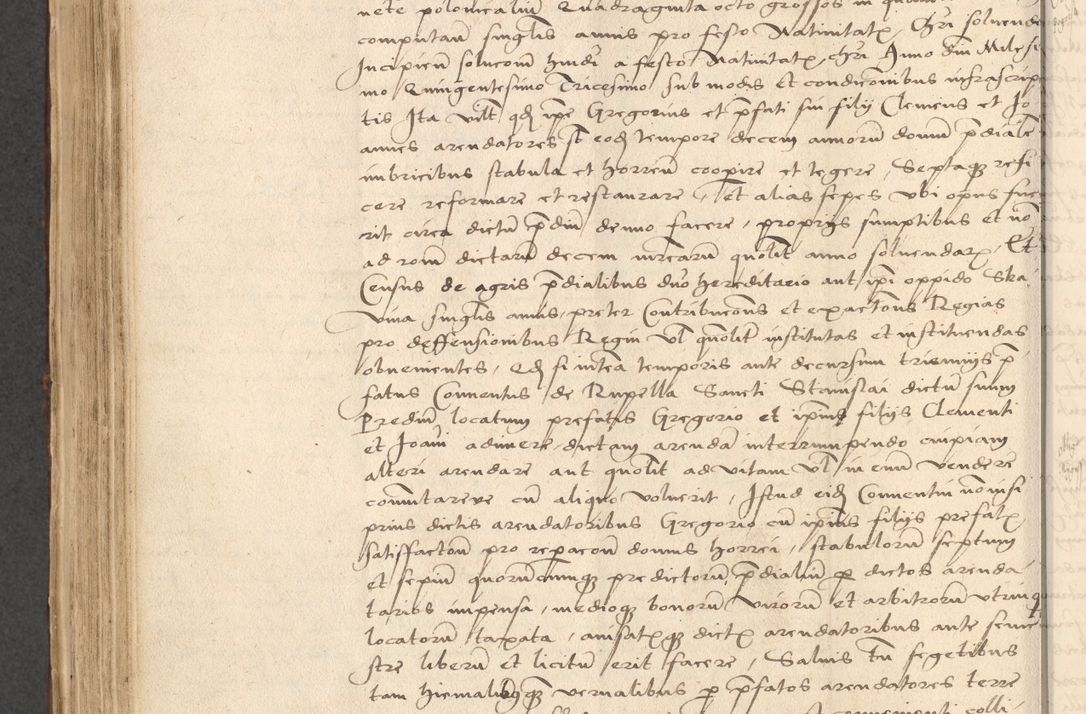 nete polonicalium Quadraginta octo grossos in
computan singlis annis pro festo Natiuitatx Chri soluend
Incipien solucion huiusmodi a festo Natiuitatx Chri Anno Dni Mille
mo Quingentesimo Tricesimo sub modis et condicionibus infrascrip
tis Ita vidlt qd ipe Gregorius et pfati sui filij Clemens et Jo
annes arendatores st eod tempore decem annorum domum pdiale
imbricibus stabula et horreum cooperire et tegere, Septaqz refi
cere reformare et restaurare, et alias sepes vbi opus fue
rit circa dictum pdium denuo facere, proprijs sumptibus et non
ad roem dictarum decem mrcarum quolit anno soluendarx, Et
Census de agris pdialibus duo hereditario aut ipi oppido Ska
vina singlis annis, preter Contribucoes et exactoes Regias
pro deffensionibus Regni vl quolit institutas et instituendas
obuenientes, Qd si infra temporis ante decursum triennij p
fatus Conuentus de Rupella Sancti Stanislai dictum suum
Predium locatum prefatis Gregorio et ipius filijs Clementi
et Joanni adimere, dictam arendam interrumpendo cuipiam
alteri arendare aut quolit ad vitam vl in euum vendere
comutareve cum aliquo voluerit, Istud eid Conuentui no nisi
prius dictis arendatoribus Gregorio cum ipius filijs prefatx
satisfactou pro reparacou domus horrei, stabulorum septum
et sepium quorumcumqz predictorum, pdialium p dictos arenda
taribs impensa, medioqz bonorum virorum et arbitrorum vtrinqz
locatorum taxata, auisatxqz dictx arendatoribus ante seme
stre liberum et licitum erit facere, Saluis tn segetibus
tam hiemalibusqz vernalibus p pfatos arendatores terre